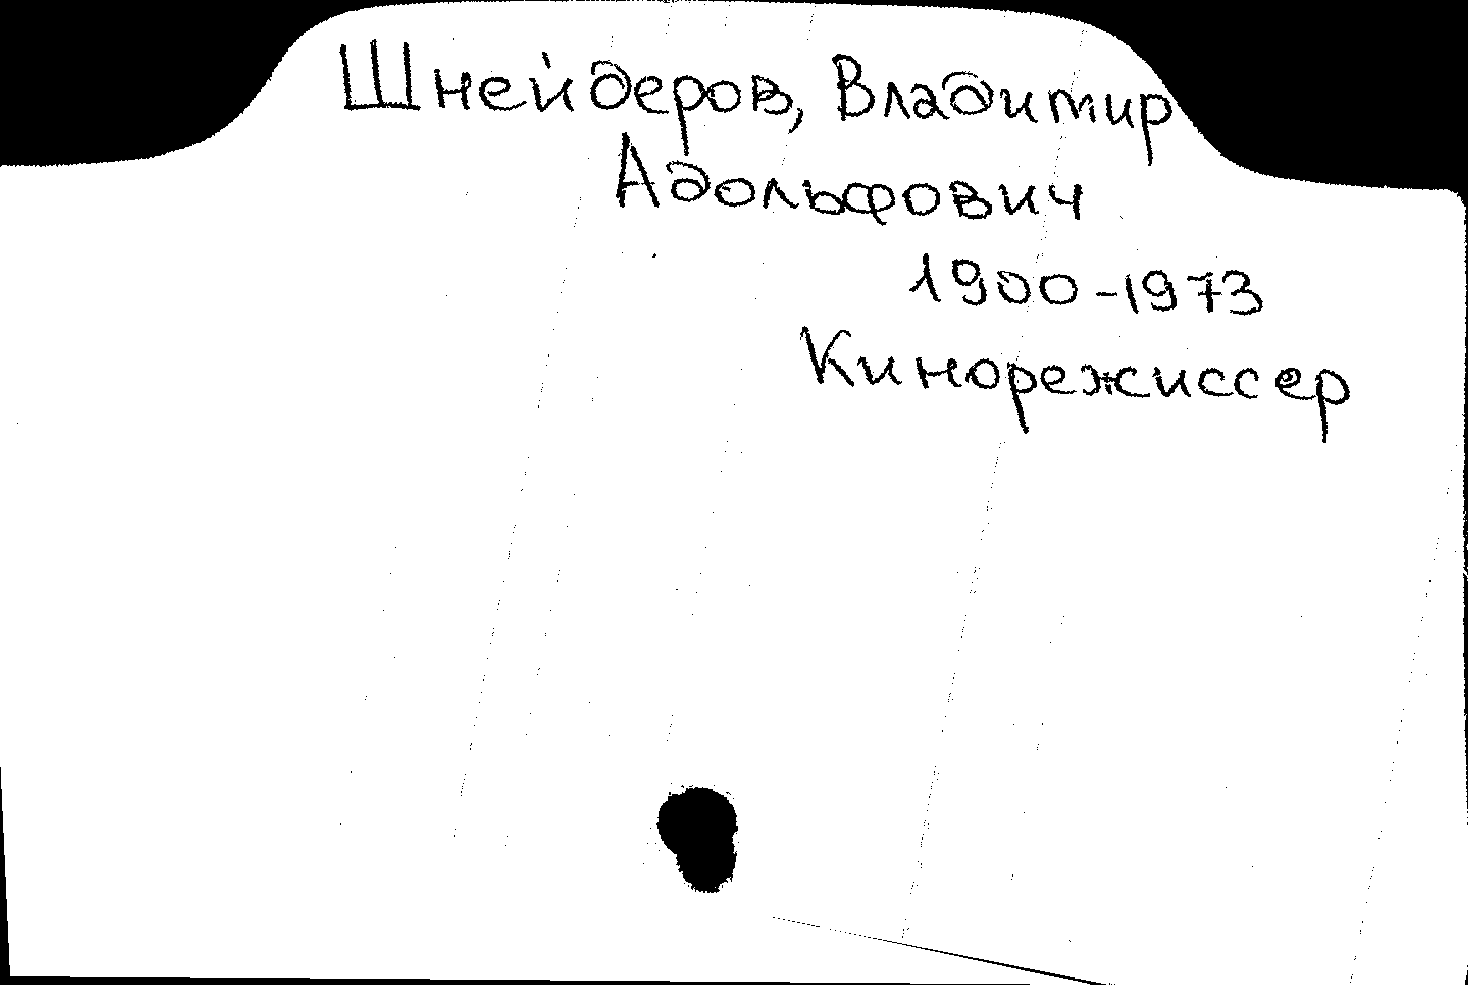 Шнейдеров, Владимир
Адольфович
1900-1973
Кинорежиссер